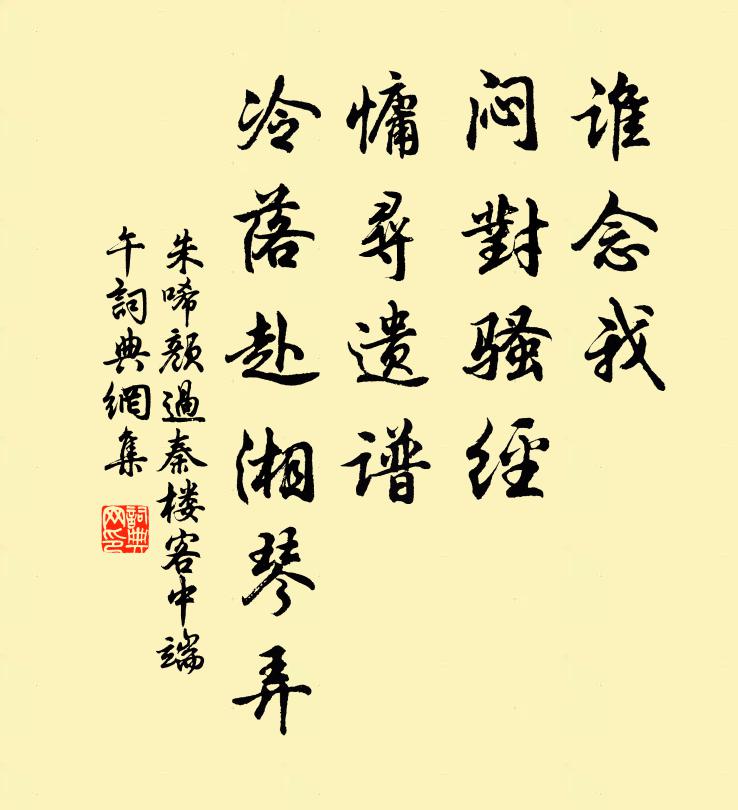 谁念我
闷對骚经
慵尋遗谱
冷落赴湘琴弄
朱唏颜過秦楼客中端
午詞典網集
詞典
网印